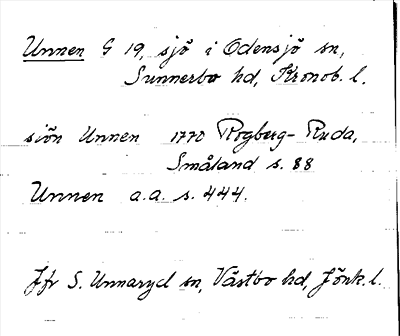 Unnen G 19, sjö i Odensjö sn,
Sunnerbo hd, Kronob. l.
sjön Unnen 1770 Rogberg-Ruda,
Småland s. 88
Unnen a.a. s. 444.
Jfr S. Unnaryd sn, Västbo hd, Jönk. l.